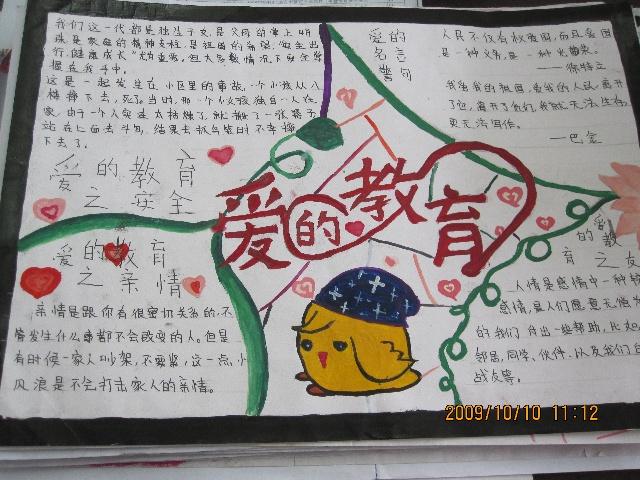 我们这一代都是独生子女,是父母的掌上明
珠是家庭的精神支柱,是祖国的希望。
行,健康成长"
握在我手中。
这是一起发生在小区里的事故,一个小孩从八
楼摔下去,死了。当时,那一个小女孩独自一人在
家,由于
站在上面去
下去了。
爱的教育
之安全
爱的教育
之亲情
亲情是跟你有很密切关系的,不
情发生什么事都不会改变的人。但是
有时候一家人吵架,不要紧,这一点小
风浪是不会打击家人的亲情。
爱的教育
爱的
名言
警句
人民不仅有权爱国,而且爱国
是一种义务,是一种光荣。
——徐特立
我爱我的祖国,爱我的人民,离开
了它,离开了他们,我就无法生存,
更无法写作。
——巴金
爱的教
育之友
人情是感情中一种
感情,是人们愿意无偿
的我们付出一些帮助,比如
邻居、同学、伙伴、以及我们
战友等。
2009/10/10 11:12